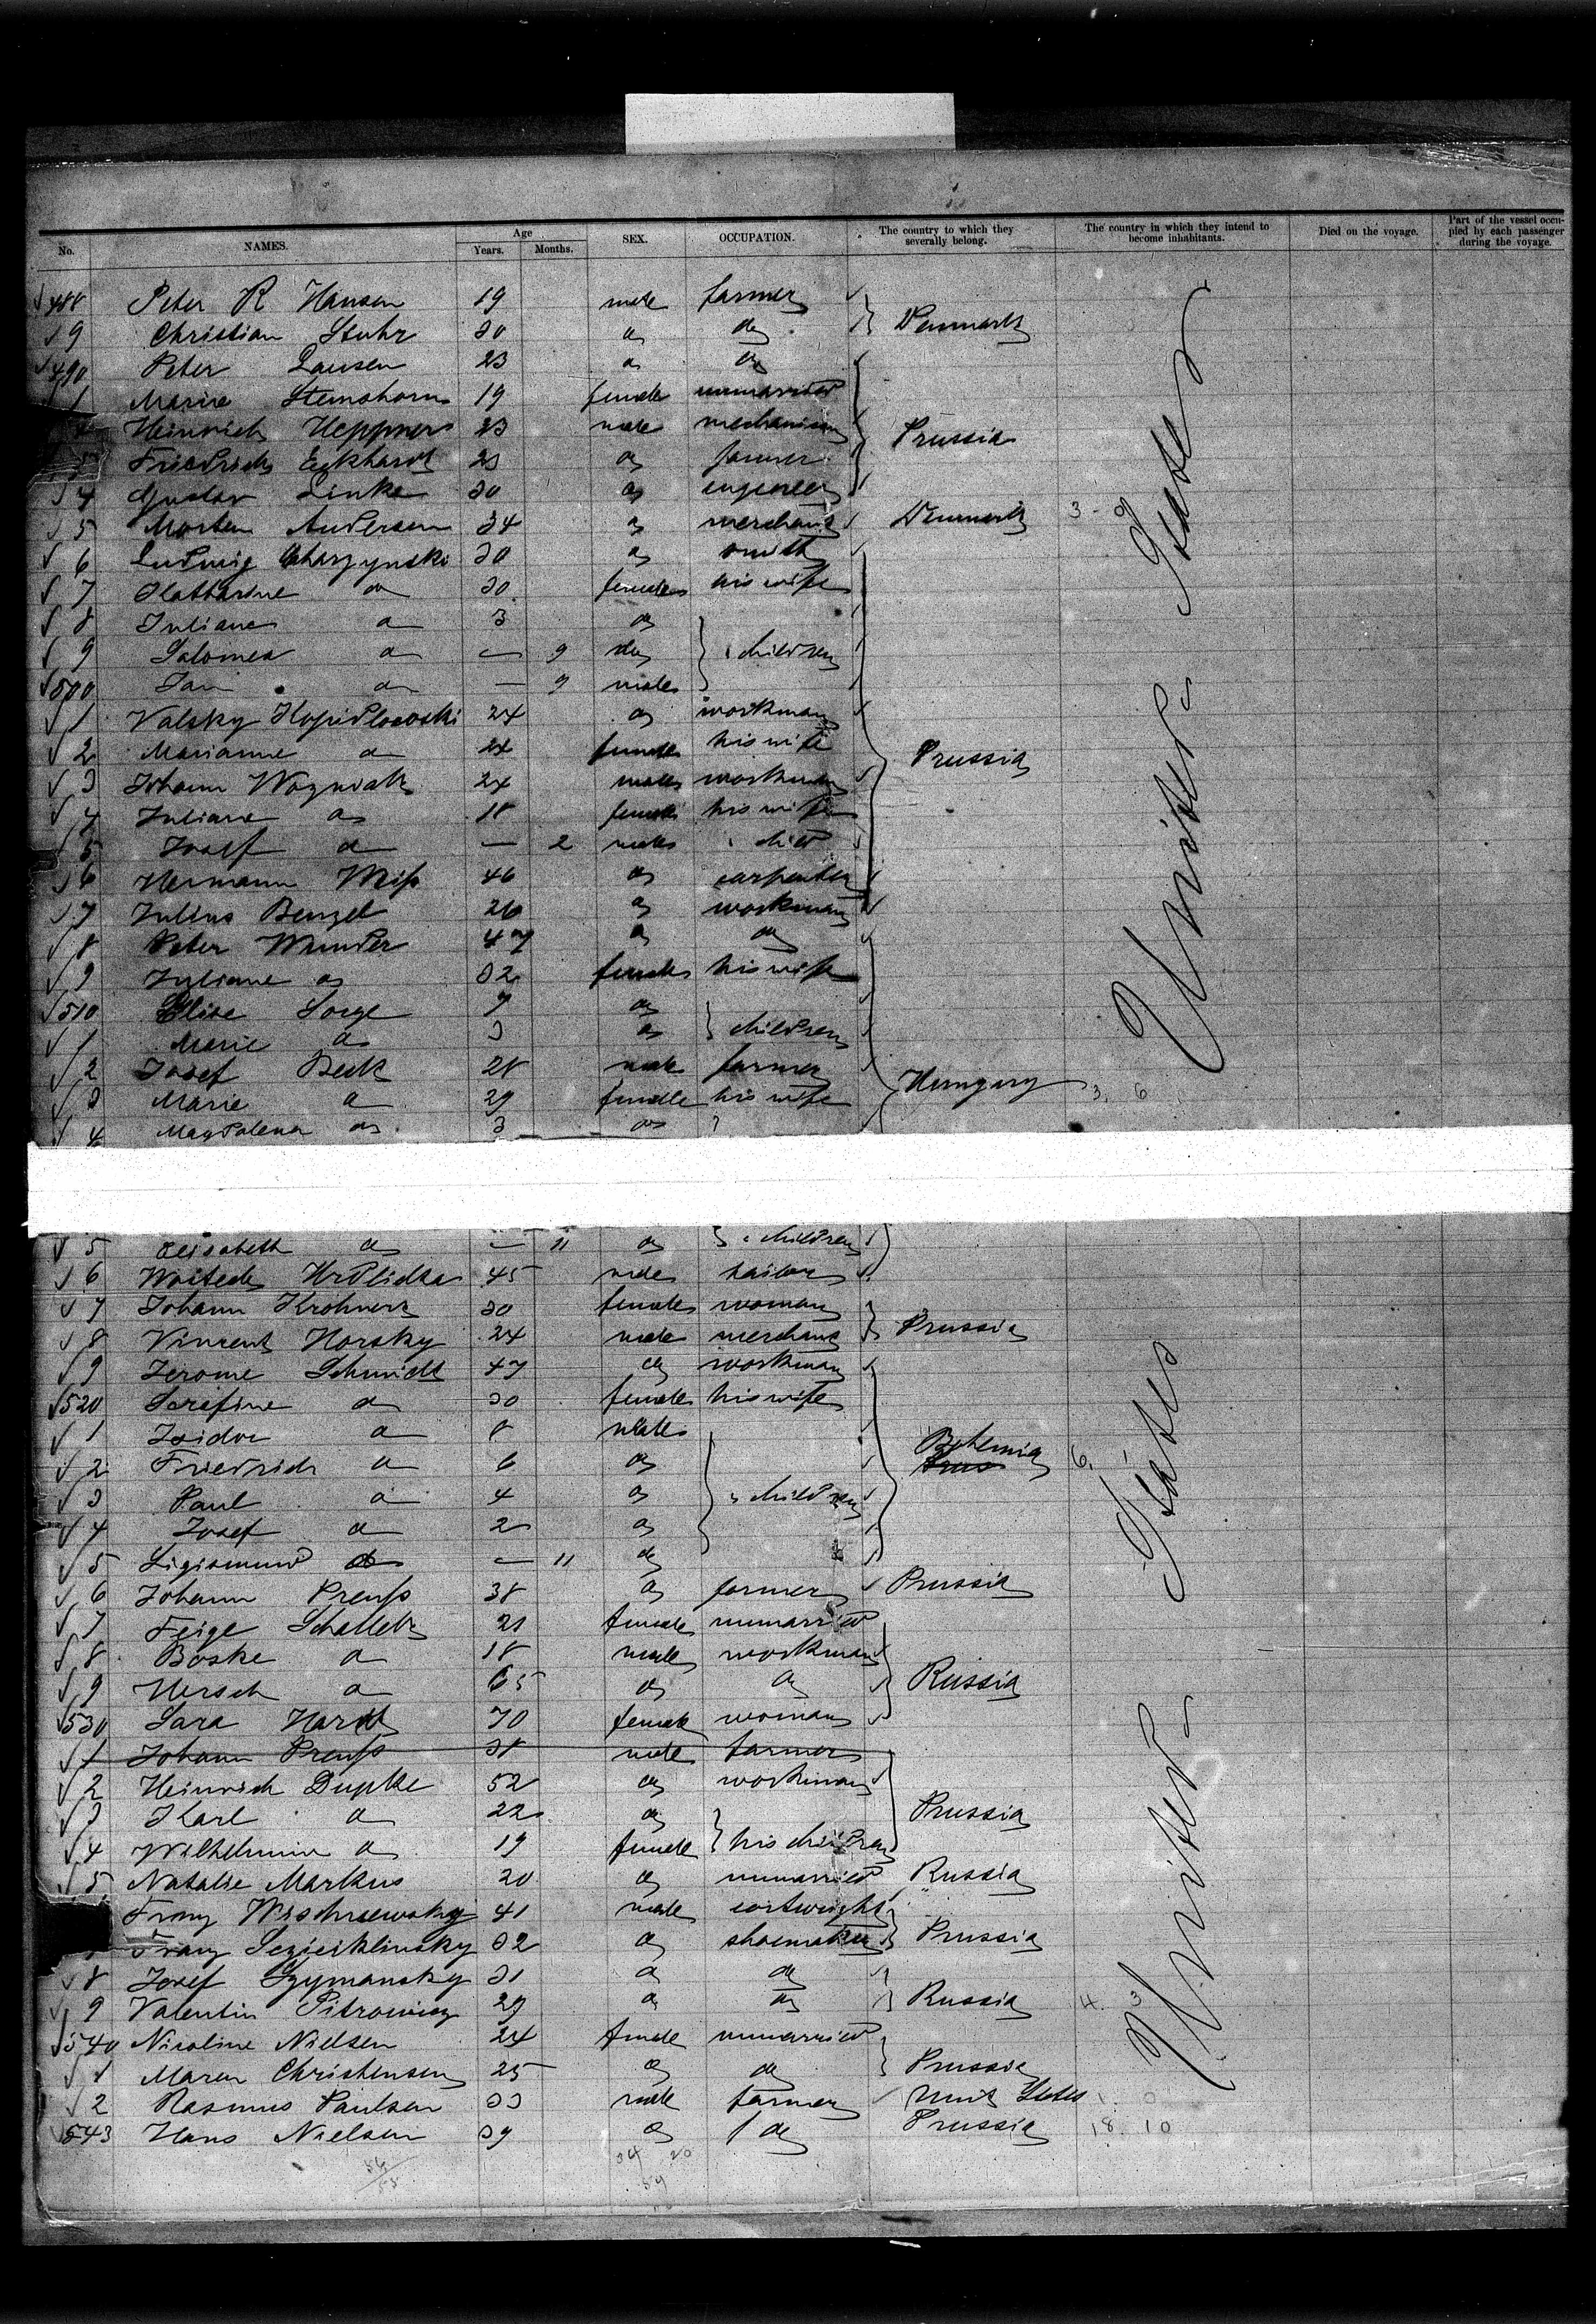 No. NAMES. Age Years. Months. SEX. OCCUPATION. The country to which they severally belong. The country in which they intend to become inhabitants. Died on the voyage. Part of the vessel occupied by each passenger during the voyage.
488 Peter R Hansen 19 male farmer
9 Christian Stuhr 30 do do Denmark
490 Peter Lausen 23 do do
1 Marie Stemshorn 19 female unmarried
Heinrich Heppner 23 male mechanician Prussia
Friedrich Eckhardt 23 do farmer
4 Gustav Linke 30 do engineer
5 Morten Andersen 34 do merchant Denmark 3-0
6 Ludwig 30 do smith
7 Katharine do 30 female his wife
8 Juliane do 3 do
9 Salomea do — 9 do children
500 Jan do — 9 male
1 Valsky 24 do workman
2 Marianne do 24 female his wife Prussia
3 Johann Wozniak 24 male workman
4 Juliane do 18 female his wife
5 Josef do — 2 male child
6 Hermann 46 do carpenter
7 Julius Benzel 26 do workman
8 Peter Munder 47 do do
9 Juliane do 32 female his wife
510 Elise Sorge 7 do
1 Marie do 3 do children
2 Josef Beck 28 male farmer
3 Marie do 29 female his wife Hungary 3. 6
4 Magdalena do 3 do
United States
5 Elisabeth do — 11 do children
6 Hrdlidka 45 male tailor
7 Johann 30 female woman
8 Vincent Horsky 24 male merchant Prussia
9 Jerome Schmidt 47 do workman
520 Serefine do 30 female his wife
1 Isidor do 8 male
2 Friedrich do 6 do Bohemia 6. 1
3 Paul do 4 do children
4 Josef do 2 do
5 Sigismund do — 11 do
6 Johann Preuß 38 do farmer Prussia
7 Feige 21 female unmarried
8 Boske do 18 male workman
9 Hersch do 65 do do Russia
530 Sara 70 female woman
1 Johann Preuß 38 male farmer
2 Heinrich Dupke 52 do workman
3 Karl do 22 do Prussia
4 Wilhelmine do 19 female his children
5 Natalie Markus 20 do unmarried Russia
Franz 41 male cartwright
Franz 32 do shoemaker Prussia
8 Josef Szymansky 31 do do
9 Valentin 29 do do Russia 4. 3
540 Nicoline Nielsen 24 female unmarried
1 Maren Christensen 25 do do Prussia
2 Rasmus Paulsen 33 male farmer Unit States 1. 0
543 Hans Nielsen 39 do do Prussia 18. 10
United States
34 20